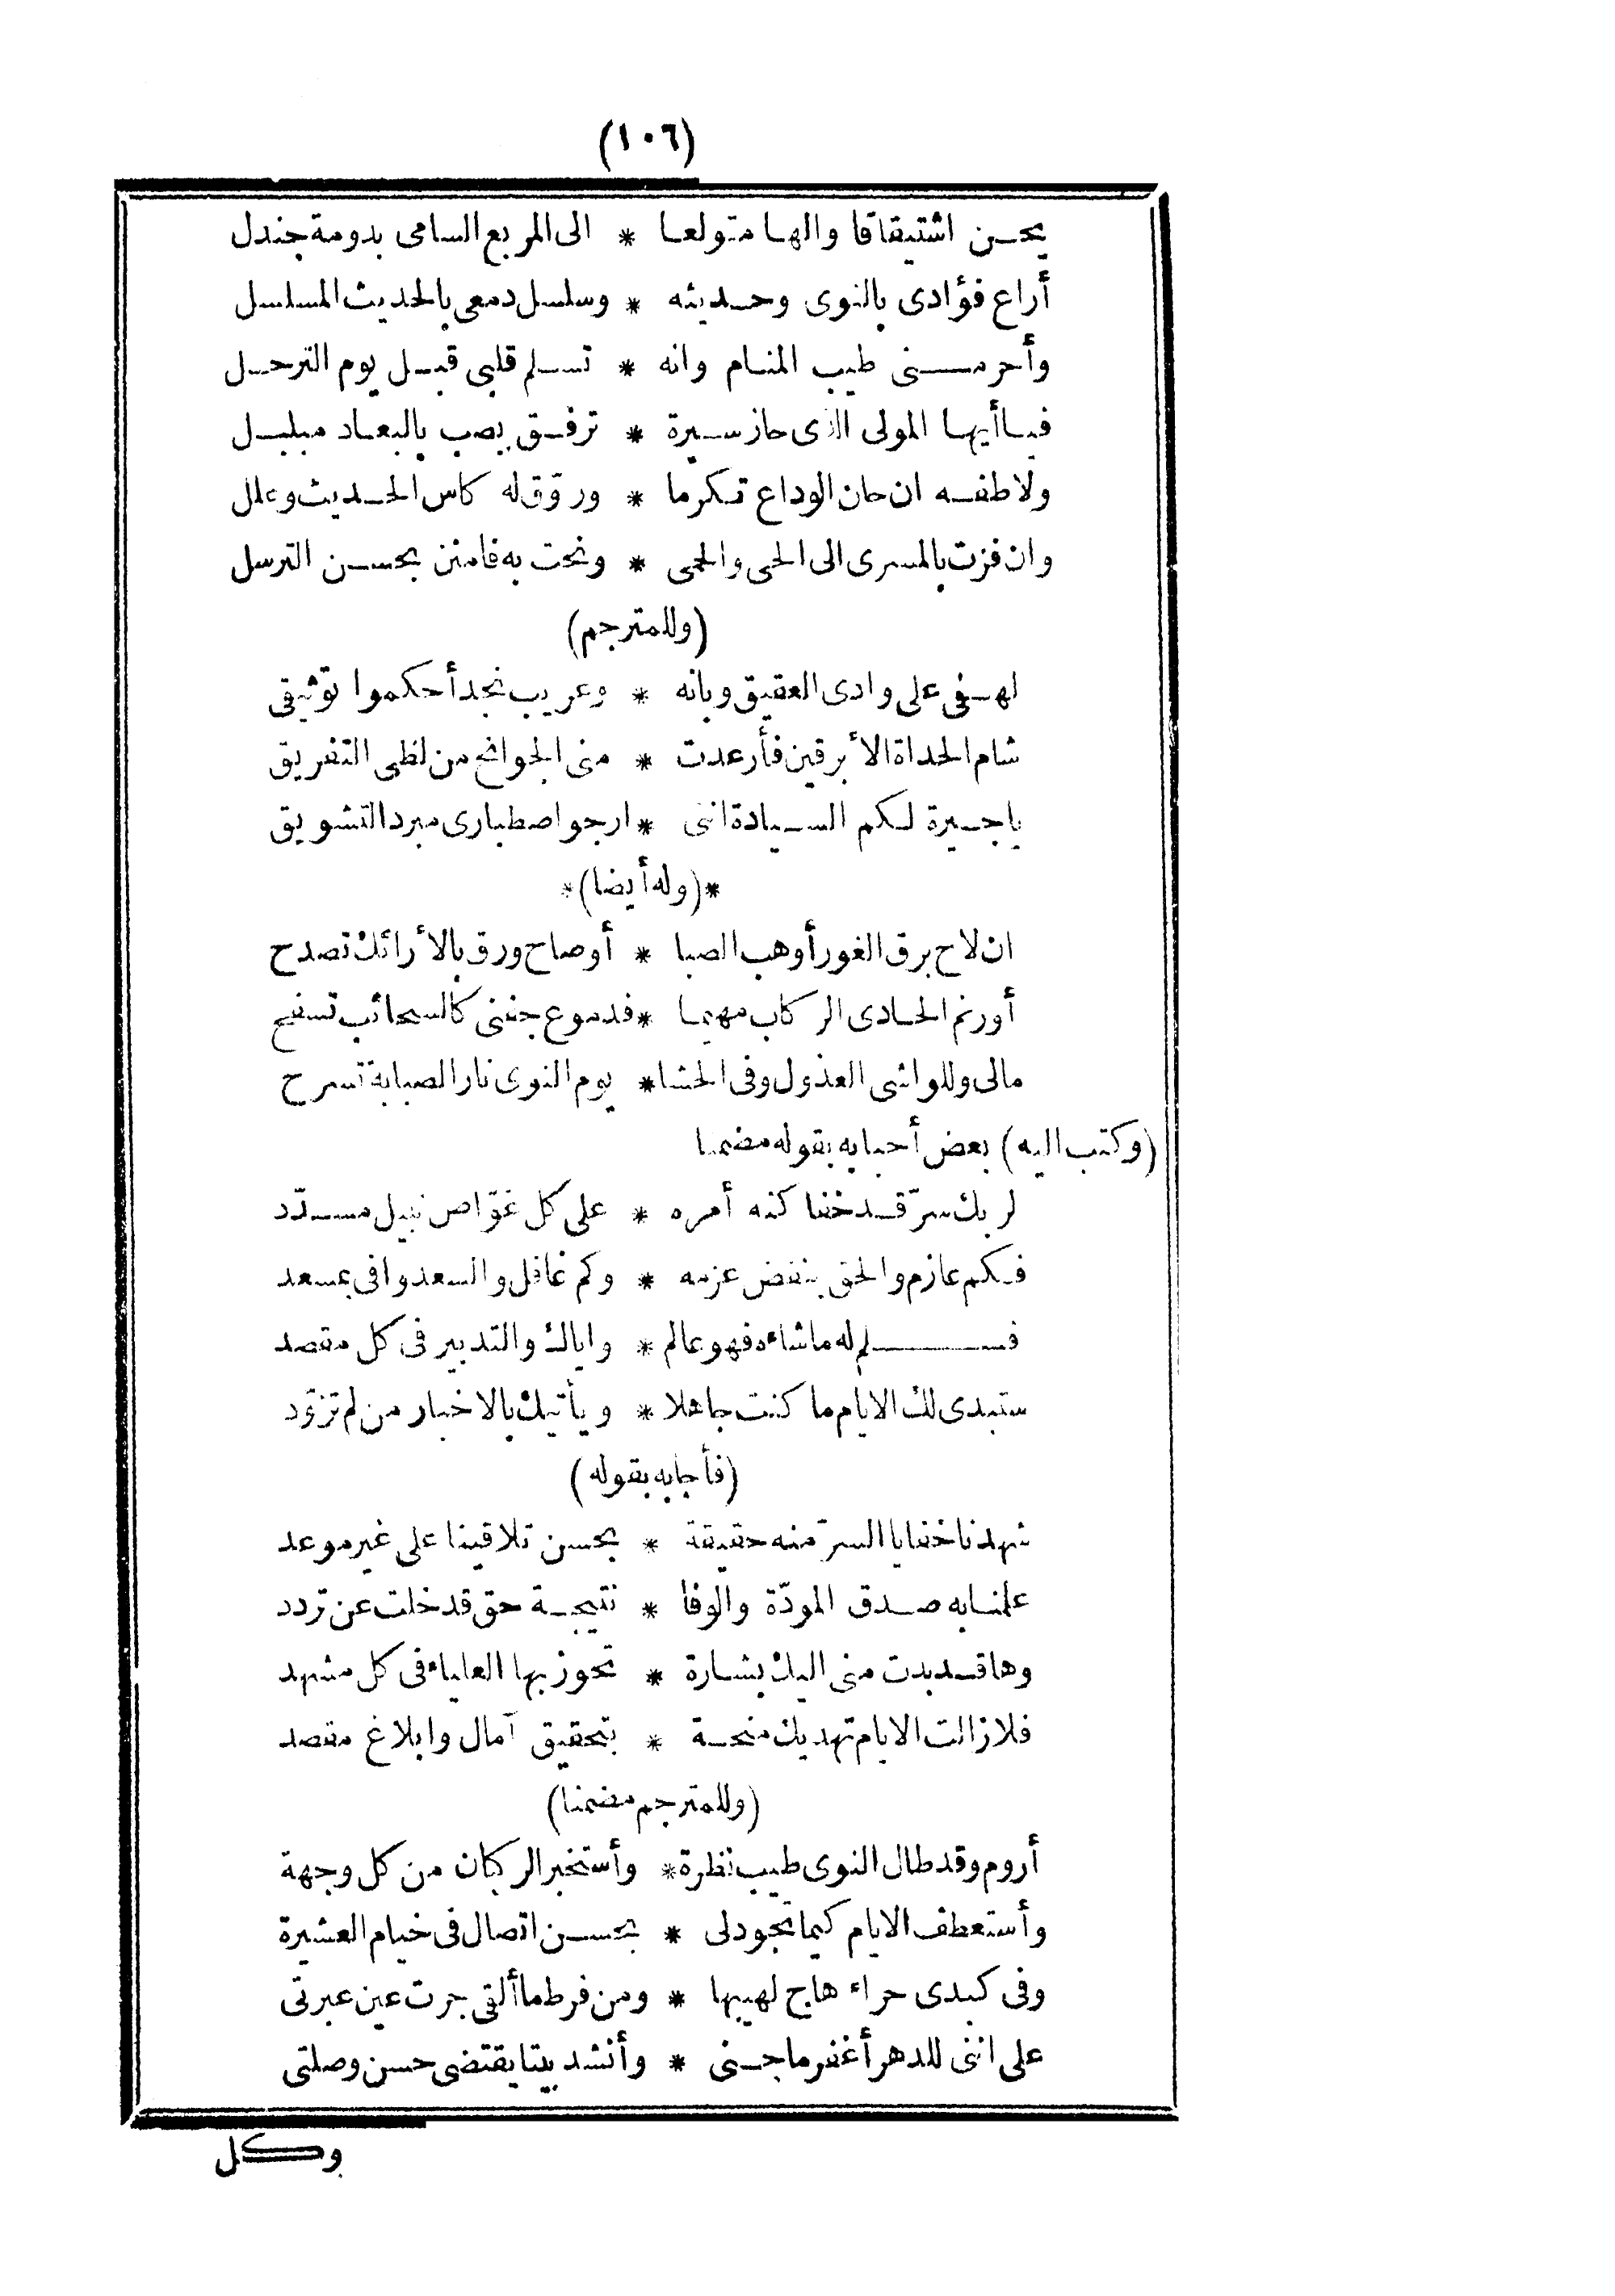 (١٠٦)
يحن اشتيقاقا والها متولعا * الى المربع السامى بدومة جندل
أراع فؤادى بالنوى وحديثه * وسلسل دمعى بالحديث المسلسل
وأحرمنى طيب المنام وانه * تسلم قلبى قبل يوم الترحل
فيا أيها المولى الذى حاز سيرة * ترفق بصب بالبعاد مبلبل
ولاطفه ان حان الوداع تكرما * وروّق له كاس الحديث وعلل
وان فزت بالمسرى الى الحى والحمى * ونحت به فامنن بحسن الترسل
(وللمترجم)
لهفى على وادى العقيق وبانه * وعريب نجد أحكموا توثيقى
شام الحداة الأبرقين فأرعدت * منى الجوانح من لظى التفريق
ياجيرة لكم السيادة اننى * ارجو اصطبارى مبرد التشويق
*(وله أيضا)*
ان لاح برق الغور أوهب الصبا * أوصاح ورق بالأرائك تصدح
أورنم الحادى الركاب مهيما * فدموع جفنى كالسحائب تسفح
مالى وللواشى العذول وفى الحشا * يوم النوى نار الصبابة تسرح
(وكتب اليه) بعض أحبابه بقوله مضمنا
لربك سرّ قد خفا كنه أمره * على كل غوّاص نبيل مسدّد
فكم عازم والحق ينقض عزمه * وكم غافل والسعد وافى بمسعد
فسلم له ماشاءه فهو عالم * واياك والتدبير فى كل مقصد
ستبدى لك الايام ما كنت جاهلا * ويأتيك بالاخبار من لم تزوّد
(فأجابه بقوله)
شهدنا خفايا السرّ منه حقيقة * بحسن تلاقينا على غير موعد
علمنا به صدق المودّة والوفا * نتيجة حق قد خلت عن تردد
وها قد بدت منى اليك بشارة * تحوز بها العلياء فى كل مشهد
فلا زالت الايام تهديك منحة * بتحقيق آمال وابلاغ مقصد
(وللمترجم مضمنا)
أروم وقد طال النوى طيب نظرة * وأستخبر الركبان من كل وجهة
وأستعطف الايام كيما تجود لى * بحسن اتصال فى خيام العشيرة
وفى كبدى حراء هاج لهيبها * ومن فرط ما ألقى جرت عين عبرتى
على اننى للدهر أغفر ما جنى * وأنشد بيتا يقتضى حسن وصلتى
وكل